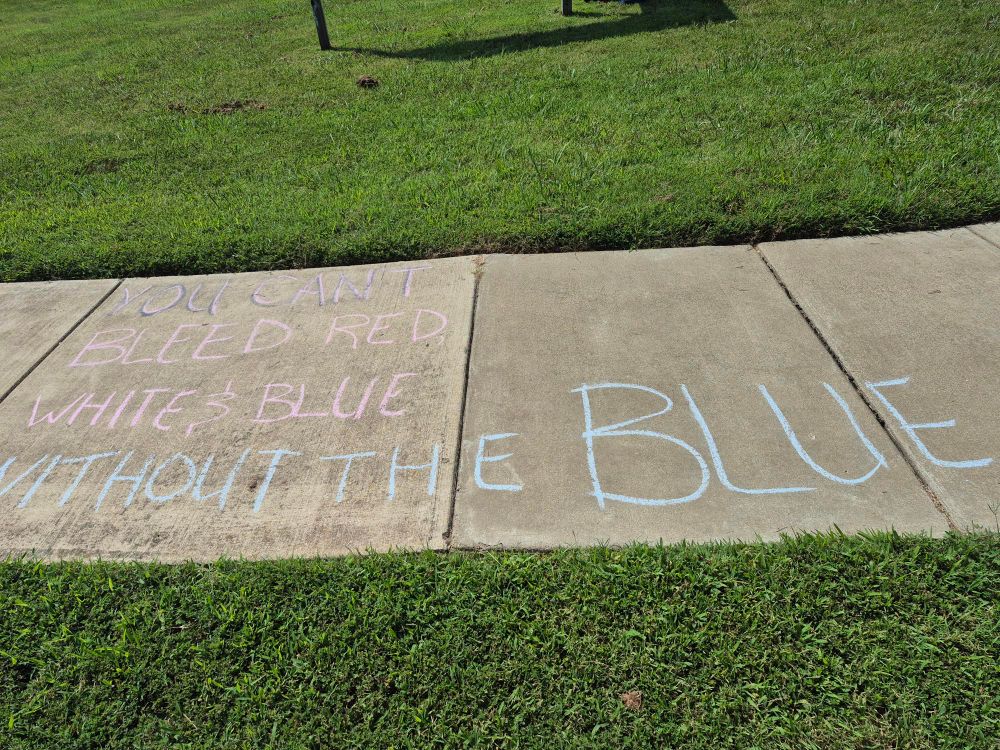 YOU CAN'T
BLEED RED,
WHITE & BLUE
WITHOUT THE BLUE